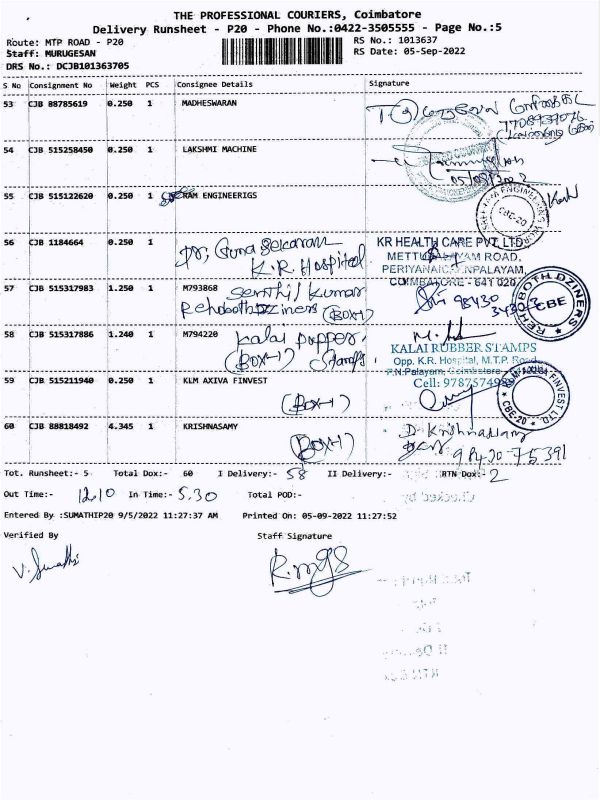 THE PROFESSIONAL COURIERS, Coimbatore
Delivery Runsheet - P20 - Phone No.:0422-3505555 - Page No.:5
Route: MTP ROAD - P20 RS No.: 1013637
Staff: MURUGESAN RS Date: 05-Sep-2022
DRS No.: DCJB101363705
S No Consignment No Weight PCS Consignee Details Signature
53 CJB 88785619 0.250 1 MADHESWARAN
54 CJB 515258450 0.250 1 LAKSHMI MACHINE
05/09/2022
55 CJB 515122620 0.250 1 RAM ENGINEERIGS
CBE-20
56 CJB 1184664 0.250 1 Dr. Gunasekaran KR HEALTH CARE PVT. LTD.
K.R. Hospital METTUPALAYAM ROAD,
PERIYANAICKENPALAYAM,
COIMBATORE - 641 020
57 CJB 515317983 1.250 1 M793868 Senthil Kumar 98430
Rehoboth Dziners (BOX-1) 34303 REHOBOTH DZINERS CBE
58 CJB 515317886 1.240 1 M794220 Kalai Rubber
(BOX-1) Stamps KALAI RUBBER STAMPS
Opp. K.R. Hospital, M.T.P. Road
P.N.Palayam, Coimbatore
Cell: 9787574989
59 CJB 515211940 0.250 1 KLM AXIVA FINVEST
(BOX-1) KLM AXIVA FINVEST LTD. CBE-20
60 CJB 88818492 4.345 1 KRISHNASAMY D. Krishnasamy
(BOX-1)
Tot. Runsheet:- 5 Total Dox:- 60 I Delivery:- 58 II Delivery:- RTN Dox:- 2
Out Time:- 12.10 In Time:- 5.30 Total POD:-
Entered By :SUMATHIP20 9/5/2022 11:27:37 AM Printed On: 05-09-2022 11:27:52
Verified By Staff Signature
V. Sumathi